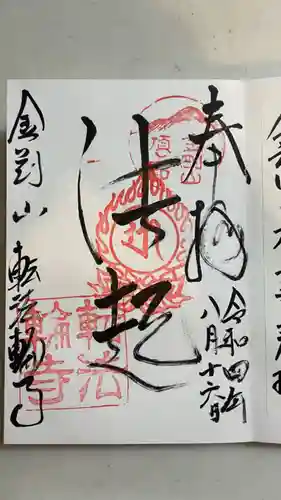 奉拝
令和四年
八月十六日
法起
金剛山 転法輪寺
金剛山
転法
輪寺